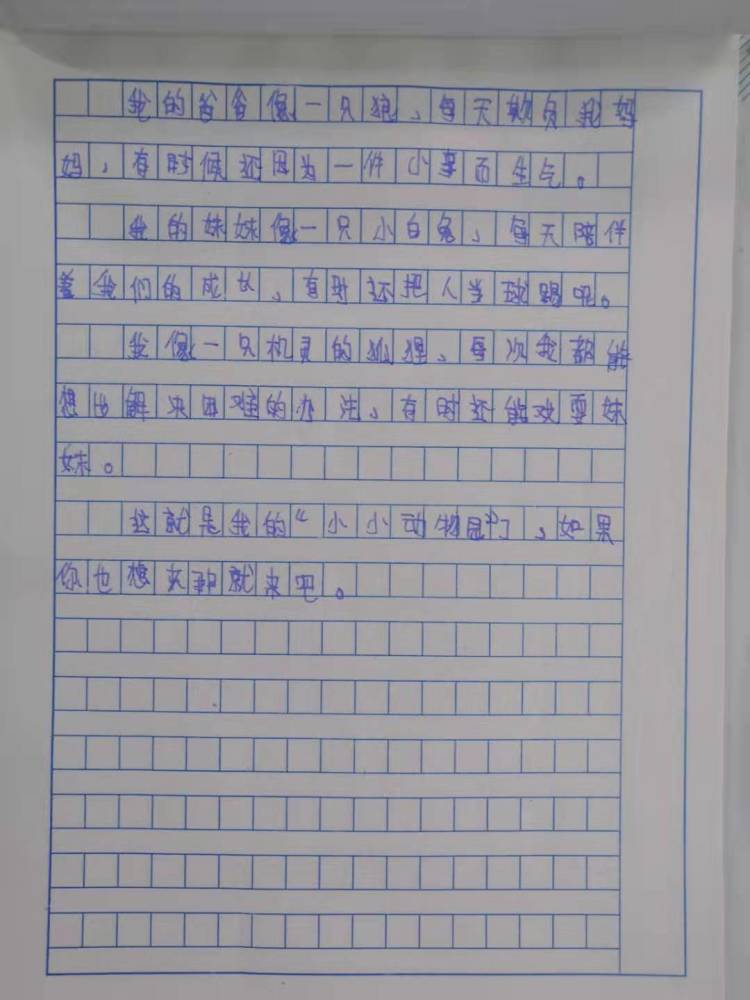 我的爸爸像一只狼、每天欺负我妈
妈、有时候还因为一件小事而生气。
我的妹妹像一只小白兔、每天陪伴
着我们的成长、有时还把人当球踢吧。
我像一只机灵的狐狸、每次我都能
想出解决困难的办法、有时还能戏耍妹
妹。
这就是我的“小小动物园”了、如果
你也想来就来吧。